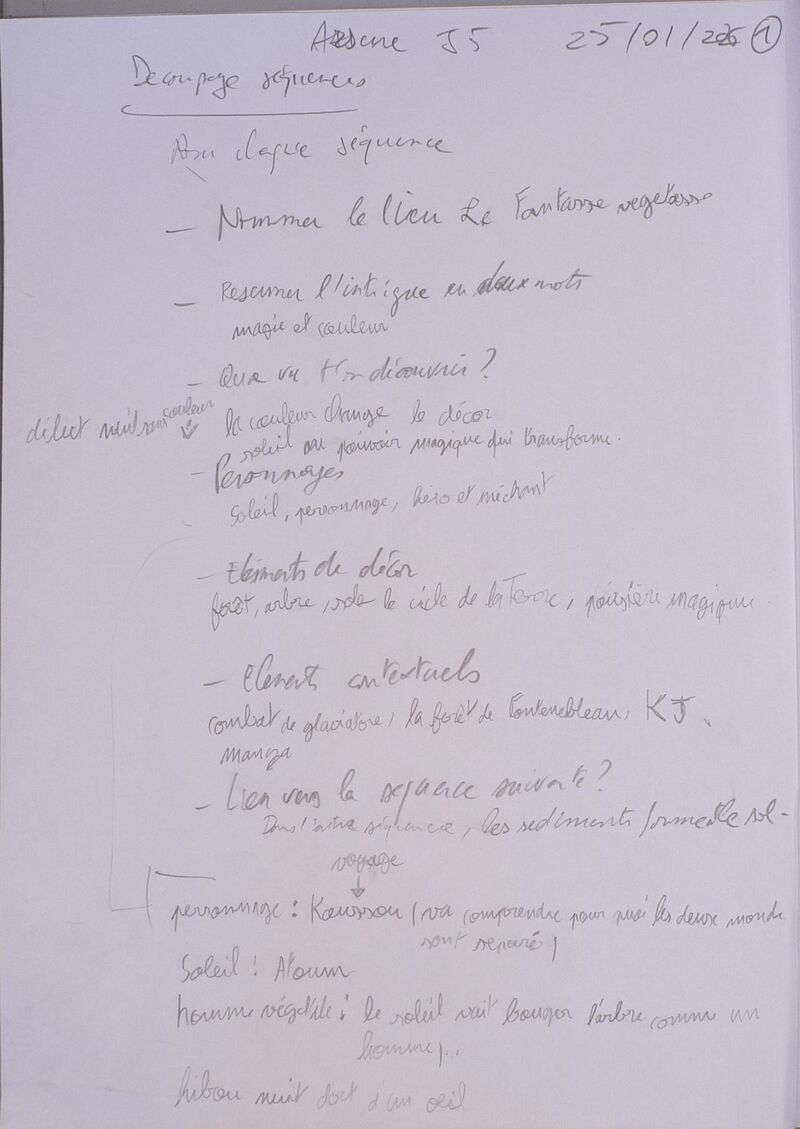 Arsene J5 25/01/2026 1
Decoupage séquences
séquence
– Nommer le lieu Le Fantasse vegetasse
– Resumer l'intrigue en deux mots
magie et couleur
– Que va t'on découvrir ?
début nuit sans couleur
la couleur change le décor
soleil au pouvoir magique qui transforme.
– Personnages
Soleil, personnage, héro et méchant
– Elements de décor
forêt, arbre, le cicle de la Terre, poussière magique
– Elements contextuels
combat de glaciatore, la forêt de Fontenebleau, KJ,
manga
– Lien vers la sequence suivante ?
Dans l'autre séquence, les sediments forme le sol -
voyage
personnage : Kausson (va comprendre pour quoi les deux monde
sont separé)
Soleil : Atoum
homme végetale : le soleil voit bouger l'arbre comme un
homme)...
hibou nuit dort d'un oeil